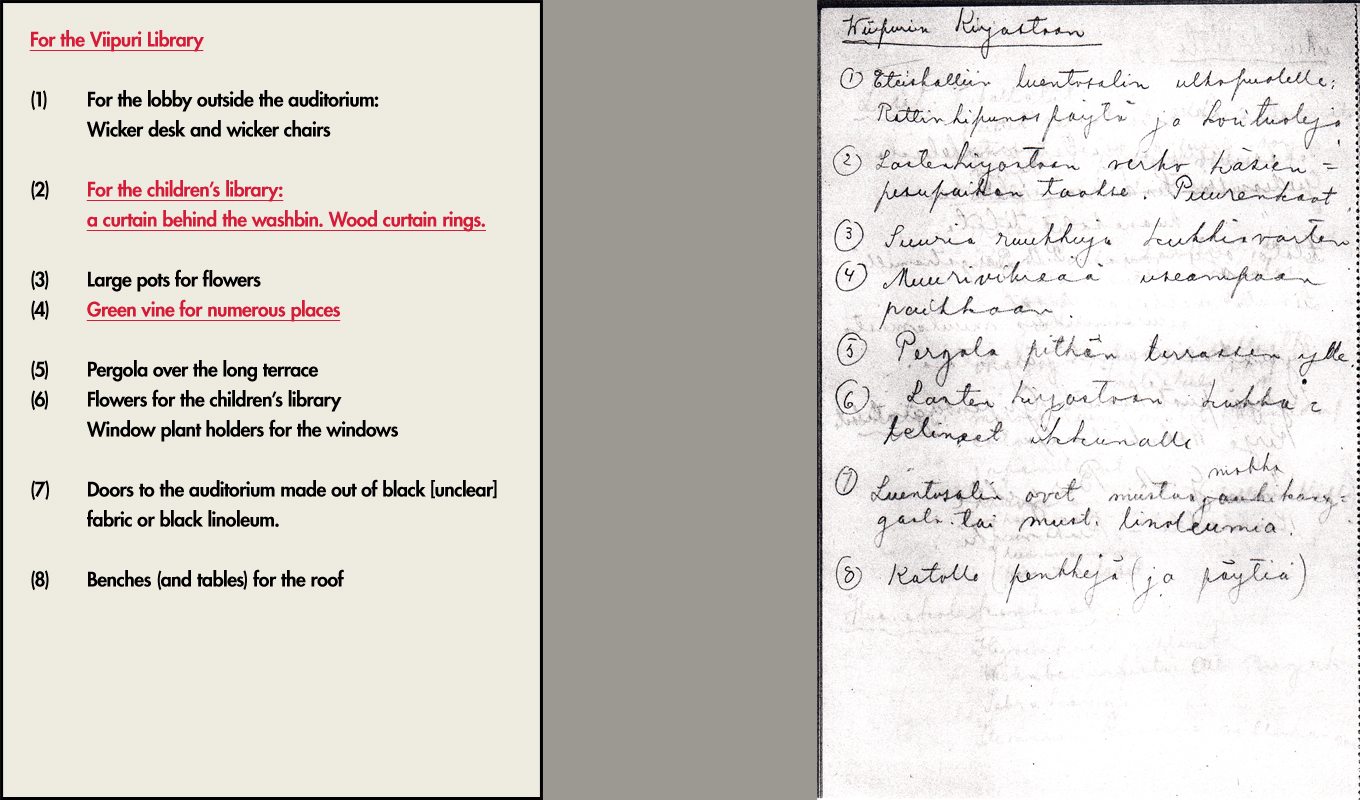 For the Viipuri Library
(1) For the lobby outside the auditorium:
Wicker desk and wicker chairs
(2) For the children's library:
a curtain behind the washbin. Wood curtain rings.
(3) Large pots for flowers
(4) Green vine for numerous places
(5) Pergola over the long terrace
(6) Flowers for the children's library
Window plant holders for the windows
(7) Doors to the auditorium made out of black [unclear]
fabric or black linoleum.
(8) Benches (and tables) for the roof
Wiipurin Kirjastoon
1 Eteishalliin luentosalin ulkopuolelle:
pöytä ja korituoleja
2 Lastenkirjastoon verho käsien=
pesupaikan taakse. Puurenkaat.
3 Suuria ruukkuja kukkia varten
4 Muurivihreää useampaan
paikkaan.
5 Pergola pitkän terrassin ylle.
6 Lasten kirjastoon kukka=
telineet ikkunalle
7 Luentosalin ovet mustas
tai must. linoleumia.
8 Katolle penkkejä (ja pöytiä)